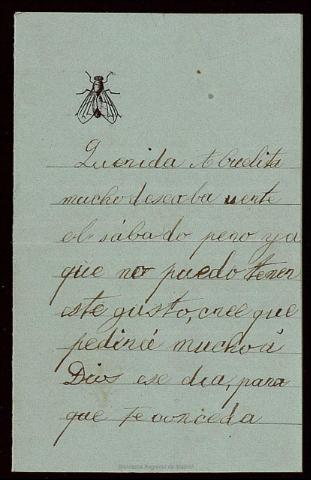 Querida Abuelita
mucho deseaba verte
el sábado pero ya
que no puedo tener
este gusto, cree que
pediré mucho á
Dios ese dia, para
que te conceda
Biblioteca Regional de Madrid